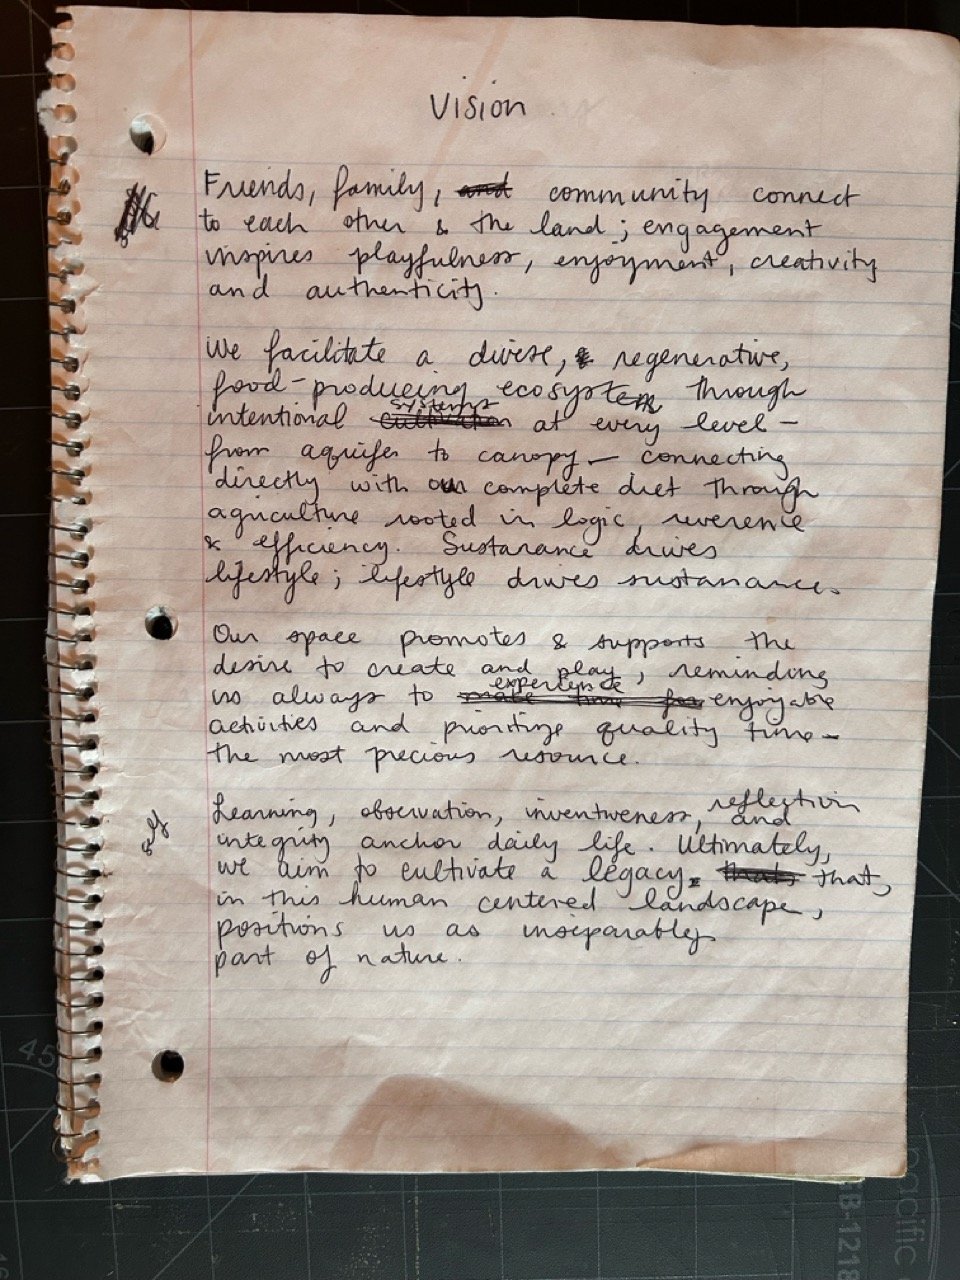 Vision
Friends, family, and community connect
to each other & the land; engagement
inspires playfulness, enjoyment, creativity
and authenticity.
We facilitate a diverse, & regenerative,
food-producing ecosystem through
systems
intentional cultivation at every level -
from aquifer to canopy - connecting
directly with our complete diet through
agriculture rooted in logic, reverence
& efficiency. Sustanance drives
lifestyle; lifestyle drives sustanance.
Our space promotes & supports the
desire to create and play, reminding
experience
us always to make time for enjoyable
activities and prioritize quality time -
the most precious resource.
reflection
Learning, observation, inventiveness, and
self
integrity anchor daily life. Ultimately,
we aim to cultivate a legacy thats that,
in this human centered landscape,
positions us as inseparably
part of nature.
45
pacific